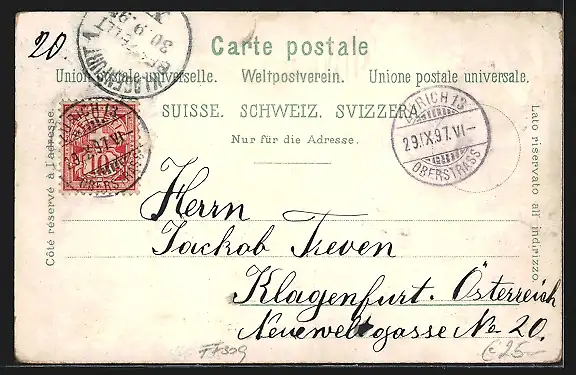 20.
KLAGENFURT 1
BESTELLT
30 9 9
Carte postale
Union postale universelle. Weltpostverein. Unione postale universale.
SUISSE. SCHWEIZ. SVIZZERA.
Nur für die Adresse.
ZÜRICH 13
29.IX.97.VI-
OBERSTRASS
10
Côté réservé à l'adresse.
Lato riservato all' indirizzo.
Herrn
Jackob Treven
Klagenfurt. Österreich
Neueweltgasse No 20.
FF309
€ 25-